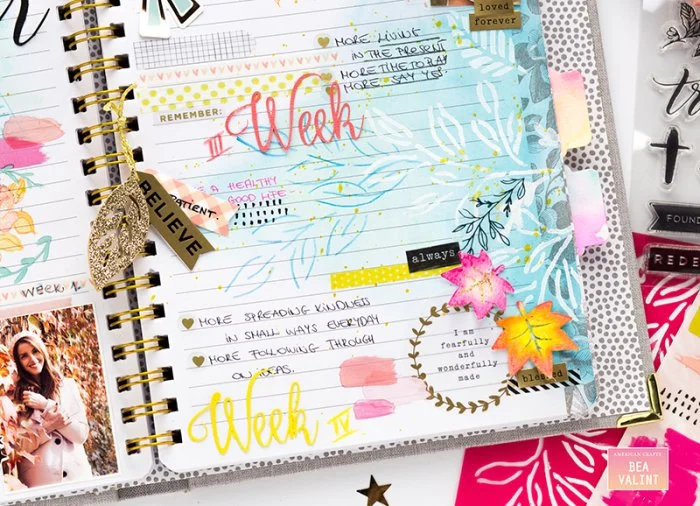 loved
forever
MORE LIVING
IN THE PRESENT
MORE TIME TO PLAY
MORE SAY YES
REMEMBER:
III Week
A HEALTHY
GOOD LIFE
PATIENT.
BELIEVE
always
WEEK
MORE SPREADING KINDNESS
IN SMALL WAYS EVERYDAY
MORE FOLLOWING THROUGH
ON IDEAS.
I am
fearfully
and
wonderfully
made
Week IV
FOUND
REDE
AMERICAN CRAFTS
BEA
VALINT